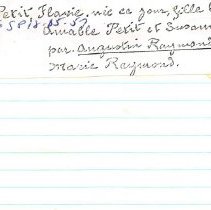 Petit, Flavie. née ce jour, fille l
Amable Petit et Susan
par. Augustin Raymond
Marie Raymond.